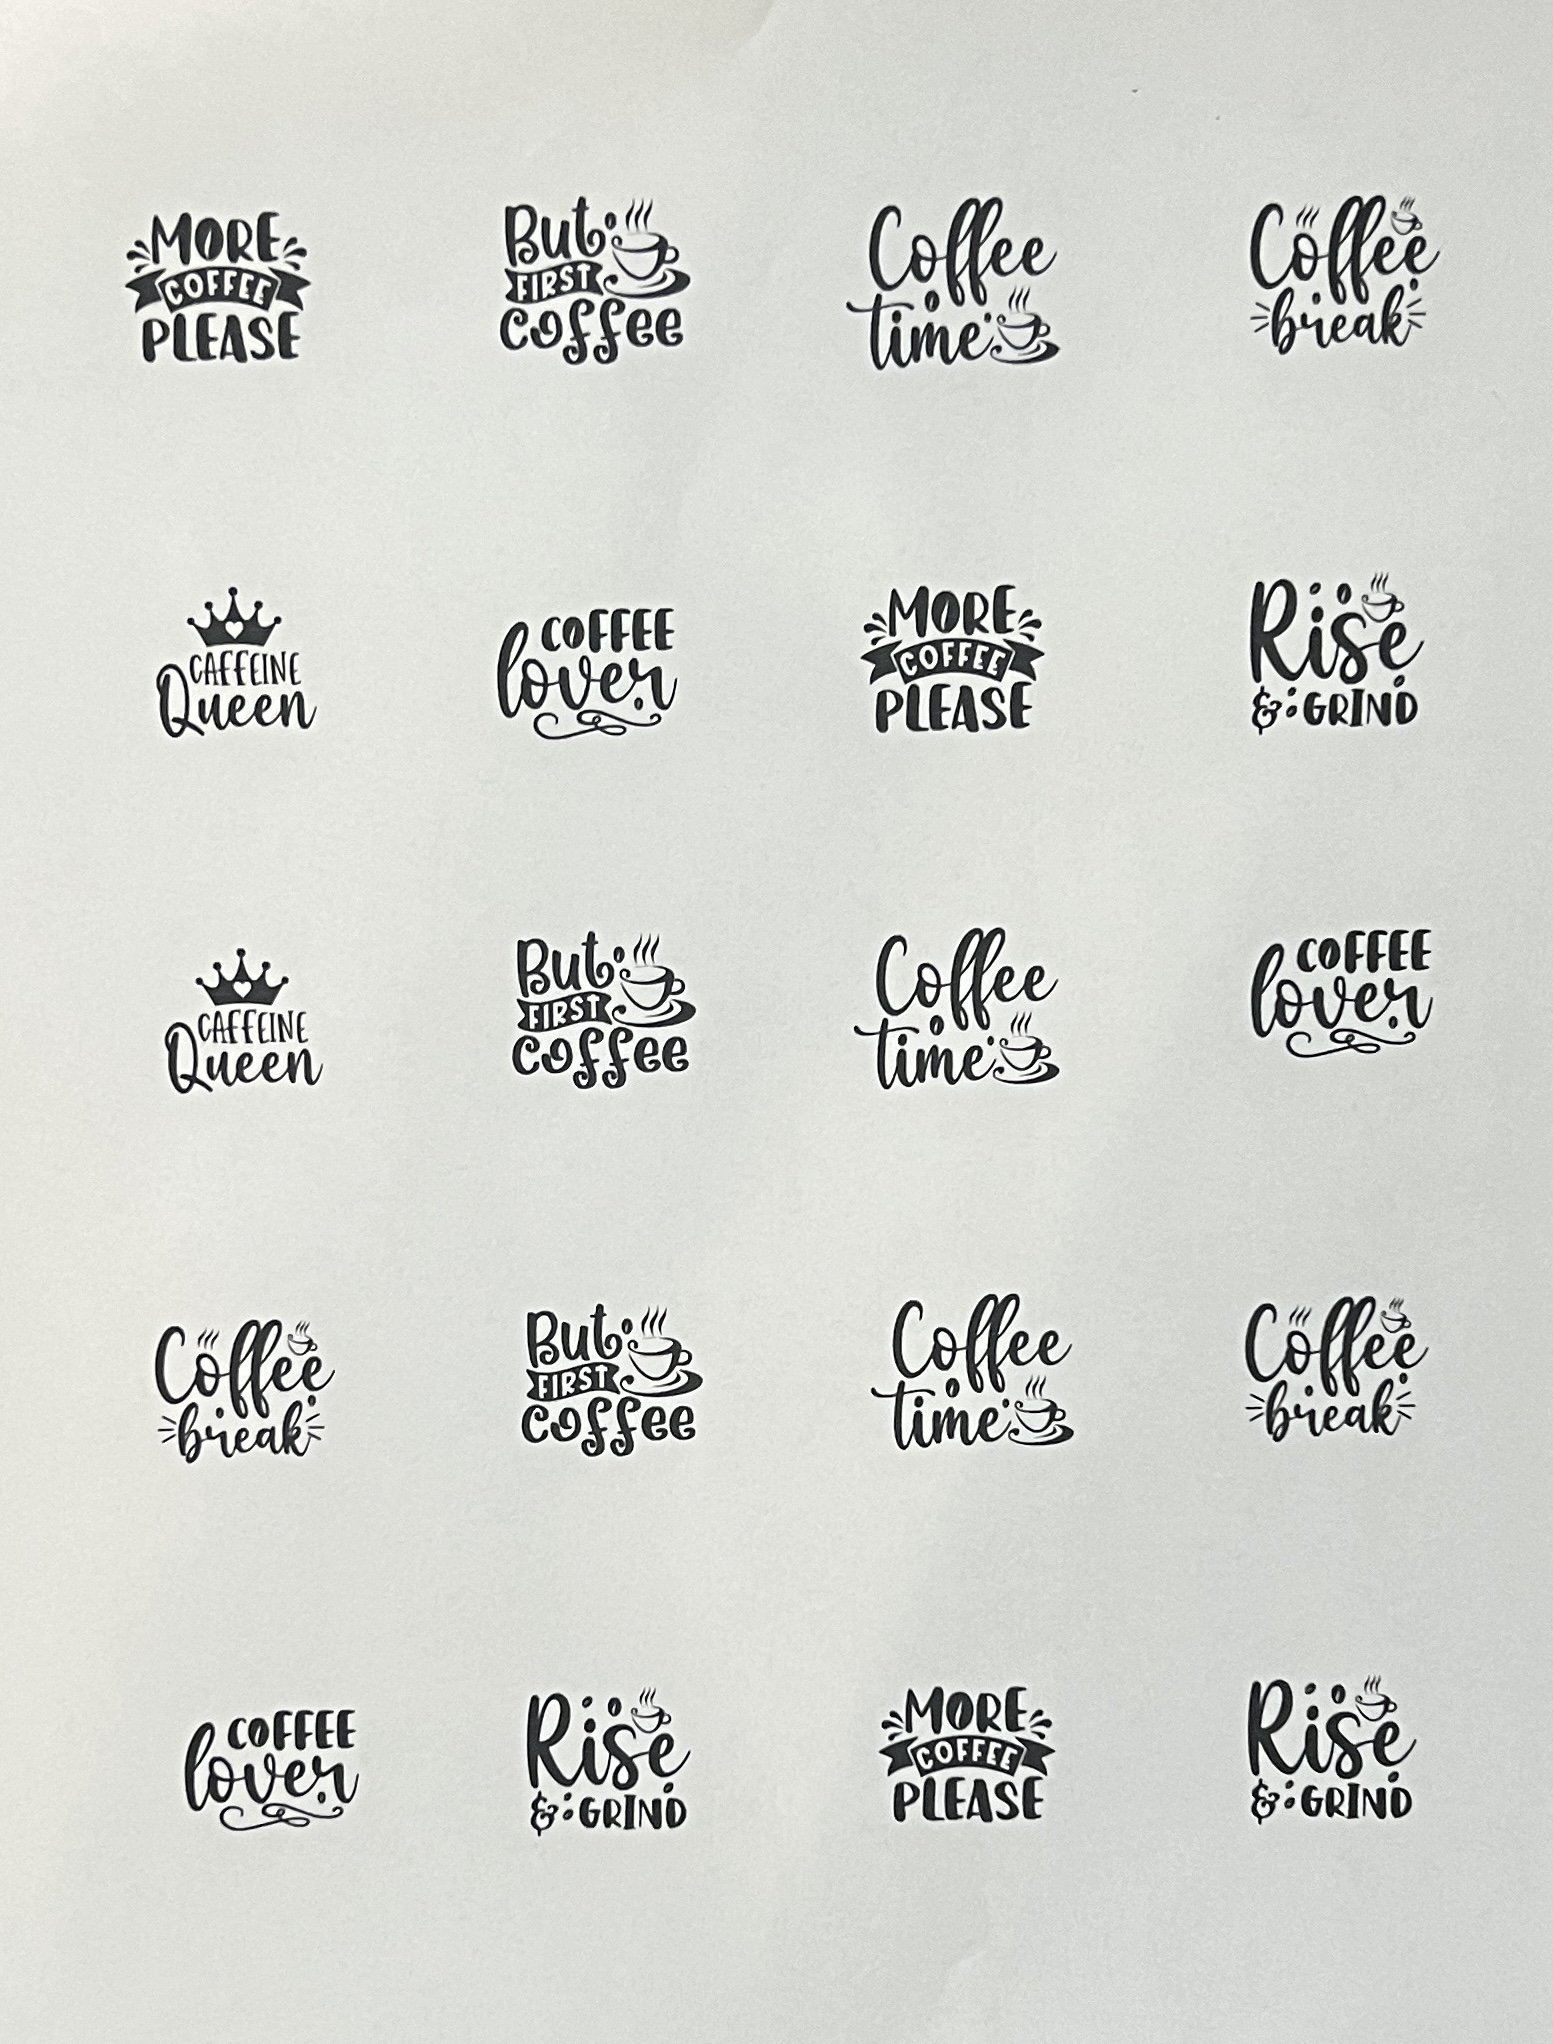 MORE
COFFEE
PLEASE
But
FIRST
coffee
Coffee
time
Coffee
break
CAFFEINE
Queen
COFFEE
lover
MORE
COFFEE
PLEASE
Rise
& GRIND
CAFFEINE
Queen
But
FIRST
coffee
Coffee
time
COFFEE
lover
Coffee
break
But
FIRST
coffee
Coffee
time
Coffee
break
COFFEE
lover
Rise
& GRIND
MORE
COFFEE
PLEASE
Rise
& GRIND